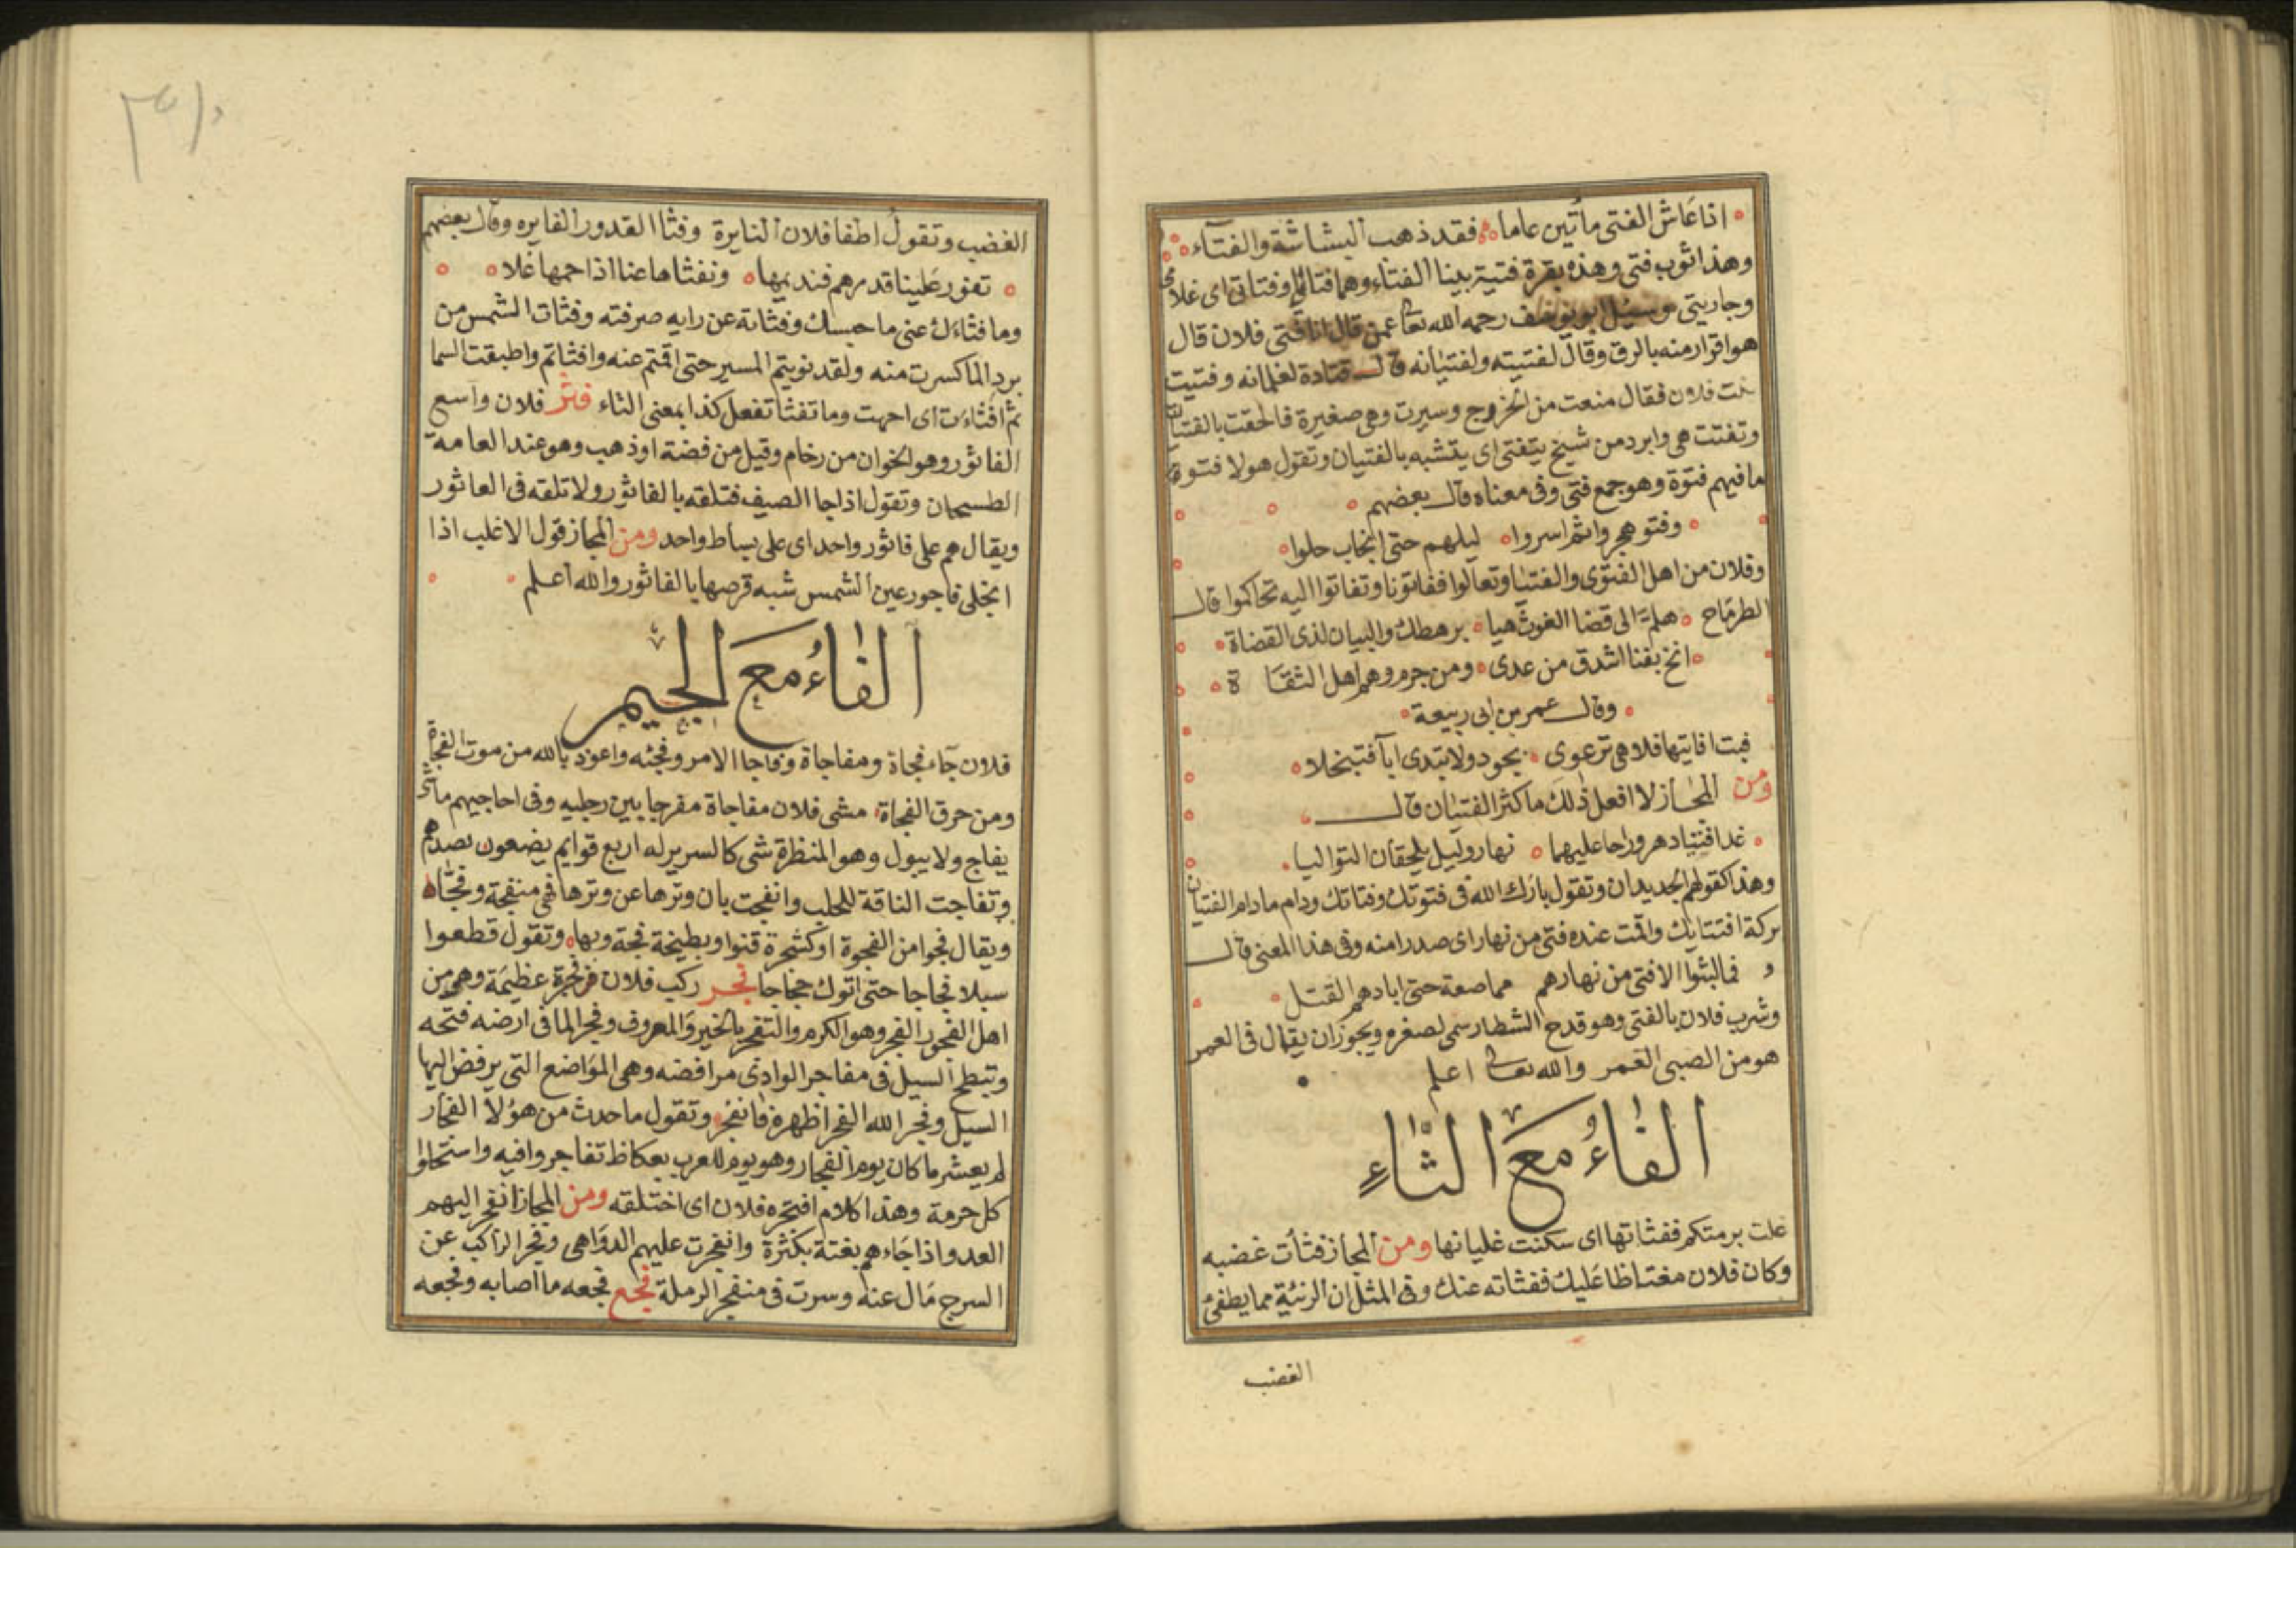 اذا عَاش الفتى مأتين عاما فقد ذهب البشاشة والفتآء
وهذا ثوب فتى وهذه بقرة فتية بينا الفتاء وهما فتائى وفتاتى اى غلامى
وجاريتى وسئل ابو يوسف رحمه الله تعالى عمن قال انا فتى فلان قال
هو اقرار منه بالرق وقال لفتيته ولفتيانه قال قتادة لغلمانه وفتيت
بنت فلان فقال منعت من الخروج وسيرت وهى صغيرة فالحقت بالفتيان
وتفتت هى وابرد من شيخ يتفتى اى يتشبه بالفتيان وتقول هولا فتوة
ما فيهم فتوة وهو جمع فتى وفى معناه قال بعضهم
وفتو هجروا ثم اسروا ليلهم حتى انجاب حلوا
وفلان من اهل الفتوى والفتيا وتعالوا ففاتونا وتفاتوا اليه تحاكموا قال
الطرماح هلم الى قضا الغوث هيا برهطك والبيان لذى القضاة
انخ بفنا اشدق من عدى ومن جرم وهم اهل الثقا ة
وقال عمر بن ابى ربيعة
فبت افاتيها فلا هى ترعوى بجود ولا تبدى ابآ فتبخلا
ومن المجاز لا افعل ذلك ما كثر الفتيان قال
غدا فتيا دهر وراحا عليهما نهار وليل يلحقان التواليا
وهذا كقولهم الجديدان وتقول بارك الله فى فتوتك وفتاتك ودام ما دام الفتيان
بركة افتتايك واقمت عنده فتى من نهار اى صدرا منه وفى هذا المعنى قال
فما لبثوا الا فتى من نهارهم مماصعة حتى ابادهم القتل
وشرب فلان بالفتى وهو قدح الشطار سمى لصغره ويجوز ان يقال فى العمر
هو من الصبى الغمر والله تعالى اعلم
الفاءُ مَعَ الثَّاءِ
غلت برمتكم ففثاتها اى سكنت غليانها ومن المجاز فثأت غضبه
وكان فلان مغتاظا عليك ففثاته عنك وفى المثل ان الرثية مما يطفئ
الغضب
الغضب وتقول اطفا فلان النايرة وفثا القدور الفايره وقال بعضهم
تفور علينا قدرهم فنديمها ونفثاها عنا اذا حمها غلا
وما فثاءك عنى ما حبسك وفثاته عن رايه صرفته وفثات الشمس من
برد الما كسرت منه ولقد نويتم المسير حتى اقمتم عنه وافثاتم واطبقت السما
ثم افثاءت اى اجهت وما تفثا تفعل كذا بمعنى التاء فثر فلان واسع
الفاثور وهو الخوان من رخام وقيل من فضة او ذهب وهو عند العامة
الطسخان وتقول اذا جا الصيف فتلقه بالفاثور ولا تلقه فى العاثور
ويقال هم على فاثور واحد اى على بساط واحد ومن المجاز قول الاغلب اذا
انجلى فاجور عين الشمس شبه قرصها بالفاثور والله اعلم
الفَاءُ مَعَ الجيم
فلان جآء فجاة ومفاجاة وفاجا الامر وفجئه واعوذ بالله من موت الفجاة
ومن حرق الفجاة مشى فلان مفاجاة مفرجا بين رجليه وفى احاجيهم ما شئ
يفاج ولا يبول وهو المنظرة شى كالسرير له اربع قوايم يضعون نضدهم
وتفاجت الناقة للحلب وانفجت بان وترها عن وترها فهى منفجة وفجاه
ويقال فجوا من الفجوة او كشجرة قنوا وبطيخة فجة وبها وتقول قطعوا
سبلا فجاجا حتى اتوك حجاجا فجر ركب فلان فجرة عظيمة وهو من
اهل الفجور الفجر وهو الكرم والتفجر بالخير والمعروف وفجر الما فى ارضه فتحه
وتبطح السيل فى مفاجر الوادى مرافضه وهى المواضع التى يرفض اليها
السيل وفجر الله الفجر اظهره فانفجر وتقول ما حدث من هؤلا الفجار
لم يعشر ما كان يوم الفجار وهو يوم للعرب بعكاظ تفاجروا فيه واستحلوا
كل حرمة وهذا كلام افتجره فلان اى اختلقه ومن المجاز انفجر اليهم
العدو اذا جاءهم بغتة بكثرة وانفجرت عليهم الدواهى وفجر الراكب عن
السرج مال عنه وسرت فى منفجر الرملة فجع فجعه ما اصابه وفجعه